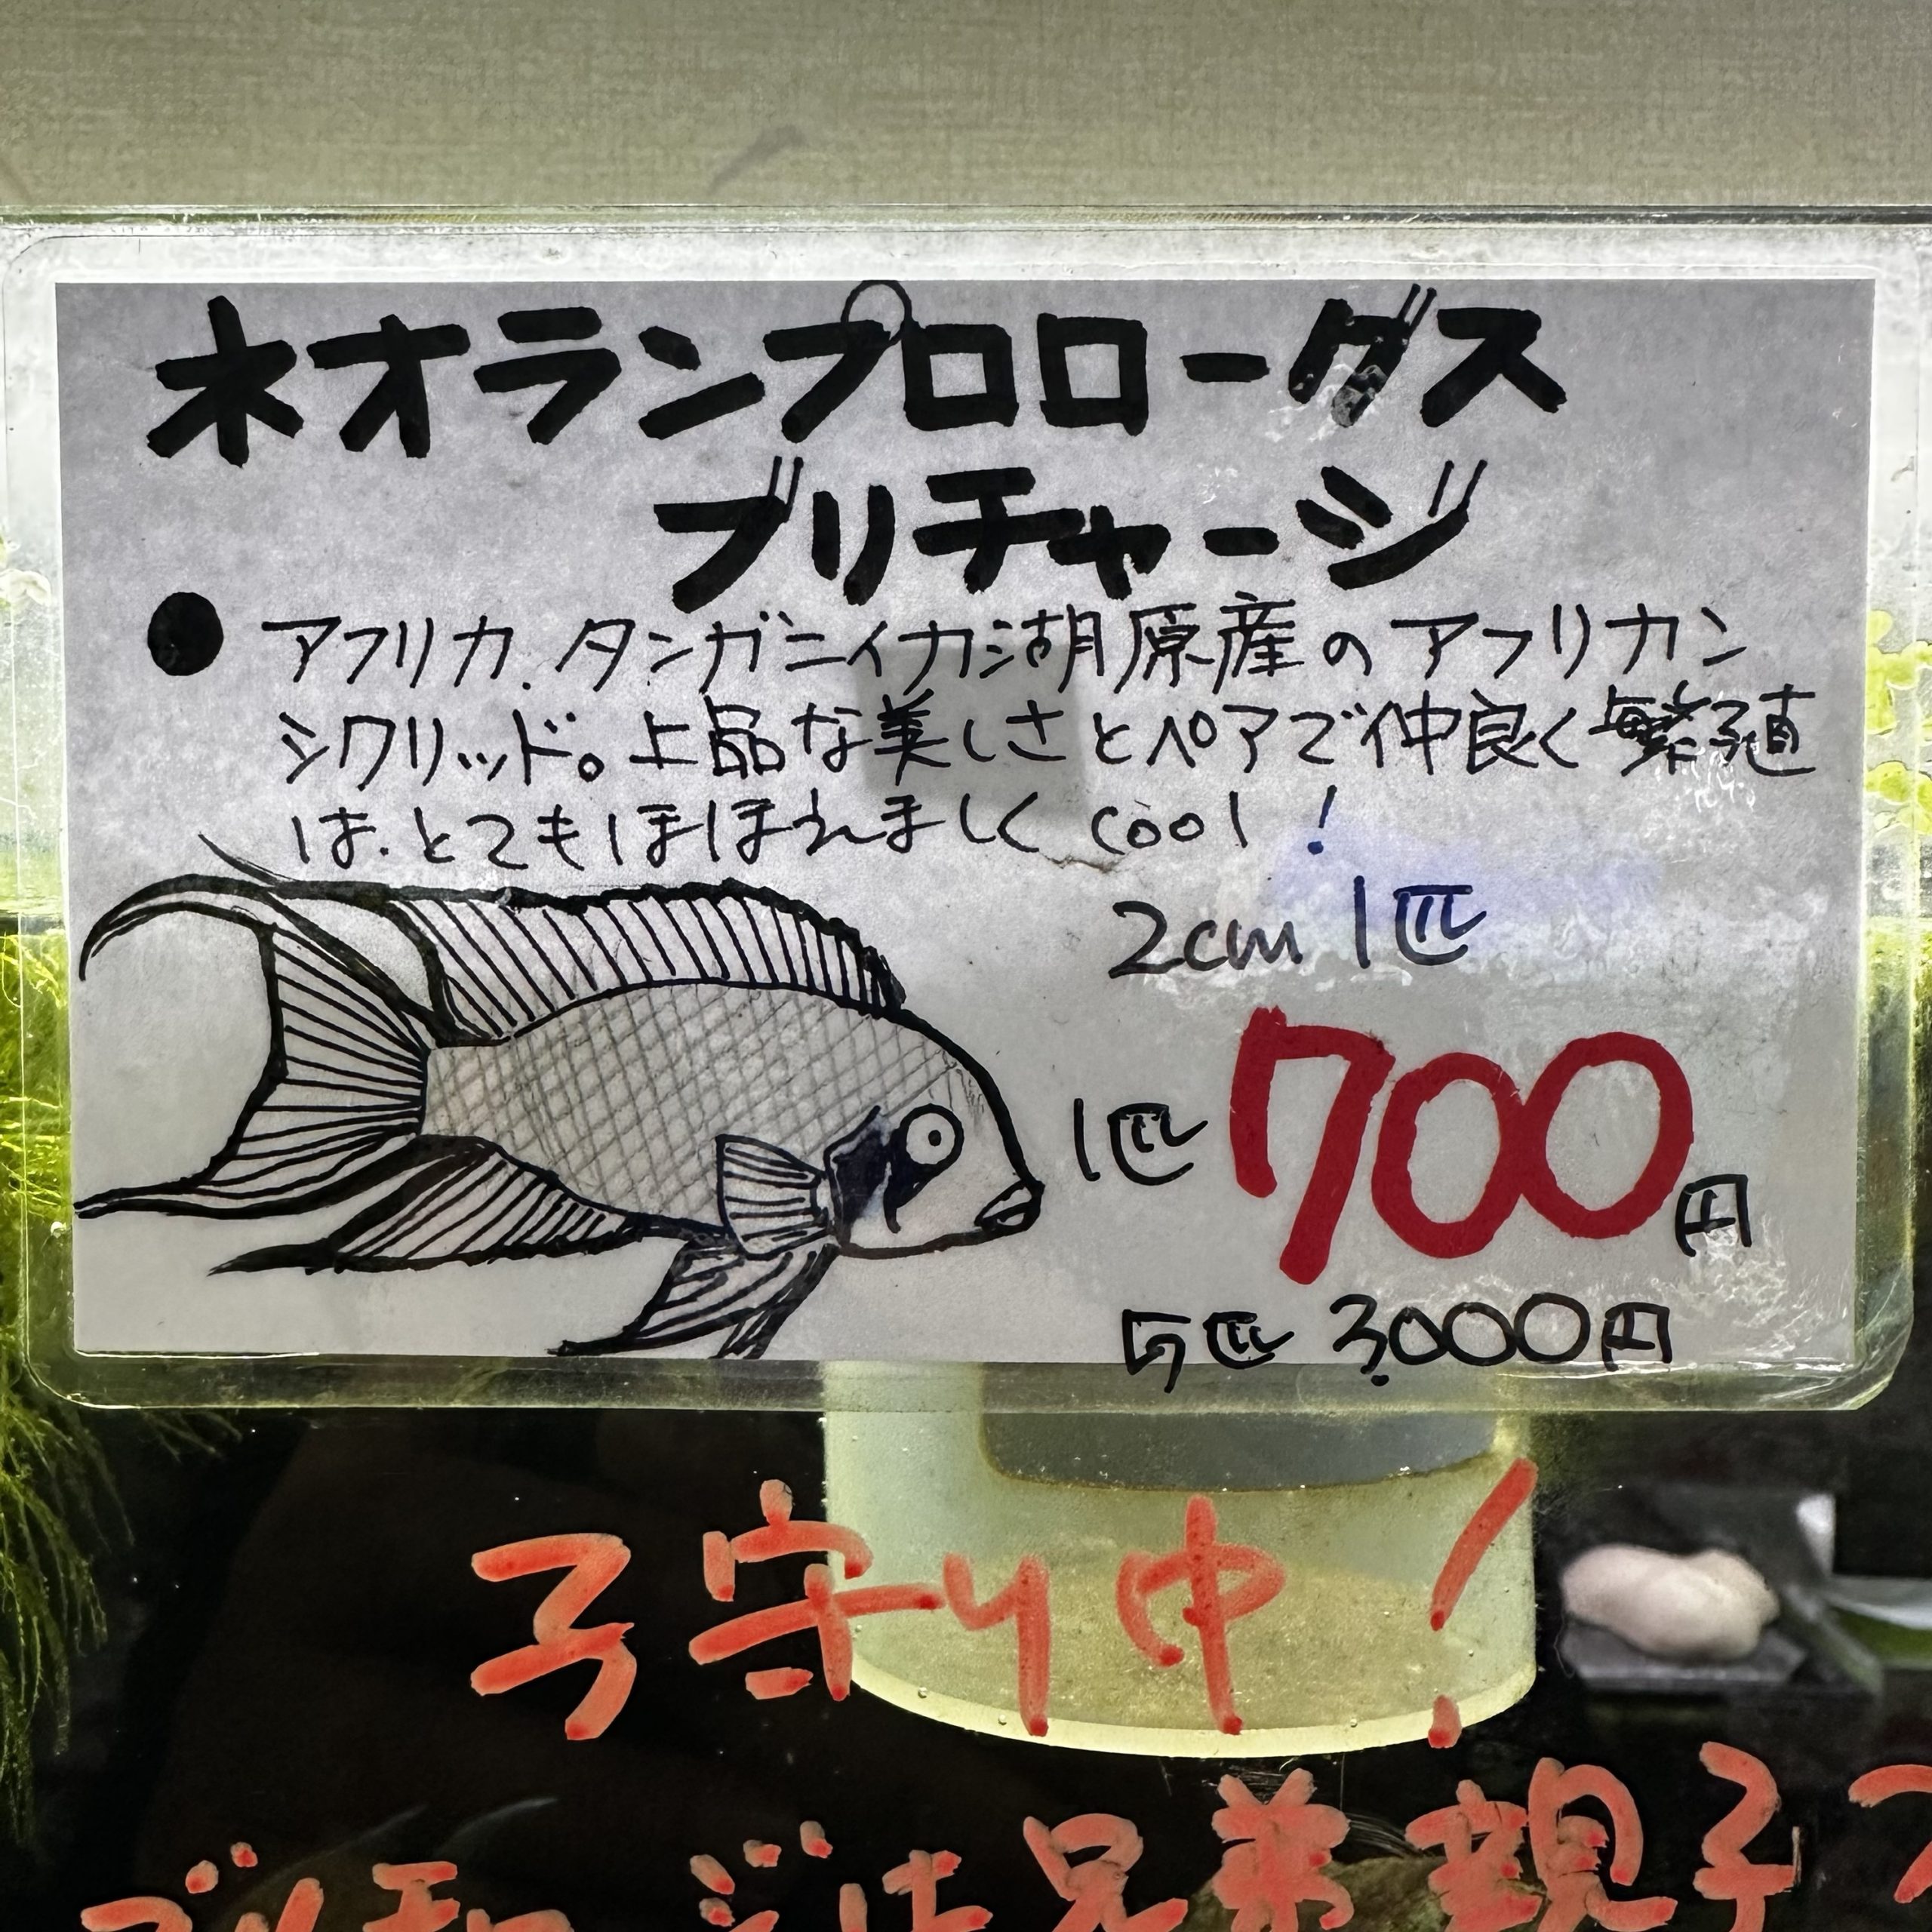 ネオランプロローグス
ブリチャージ
● アフリカ.タンガニイカ湖原産のアフリカン
シクリッド。上品な美しさとペアで仲良く繁殖
は.とてもほほえましくcool!
2cm 1匹
1匹 700円
5匹 3,000円
子守り中!
ブリチャージは兄弟親子